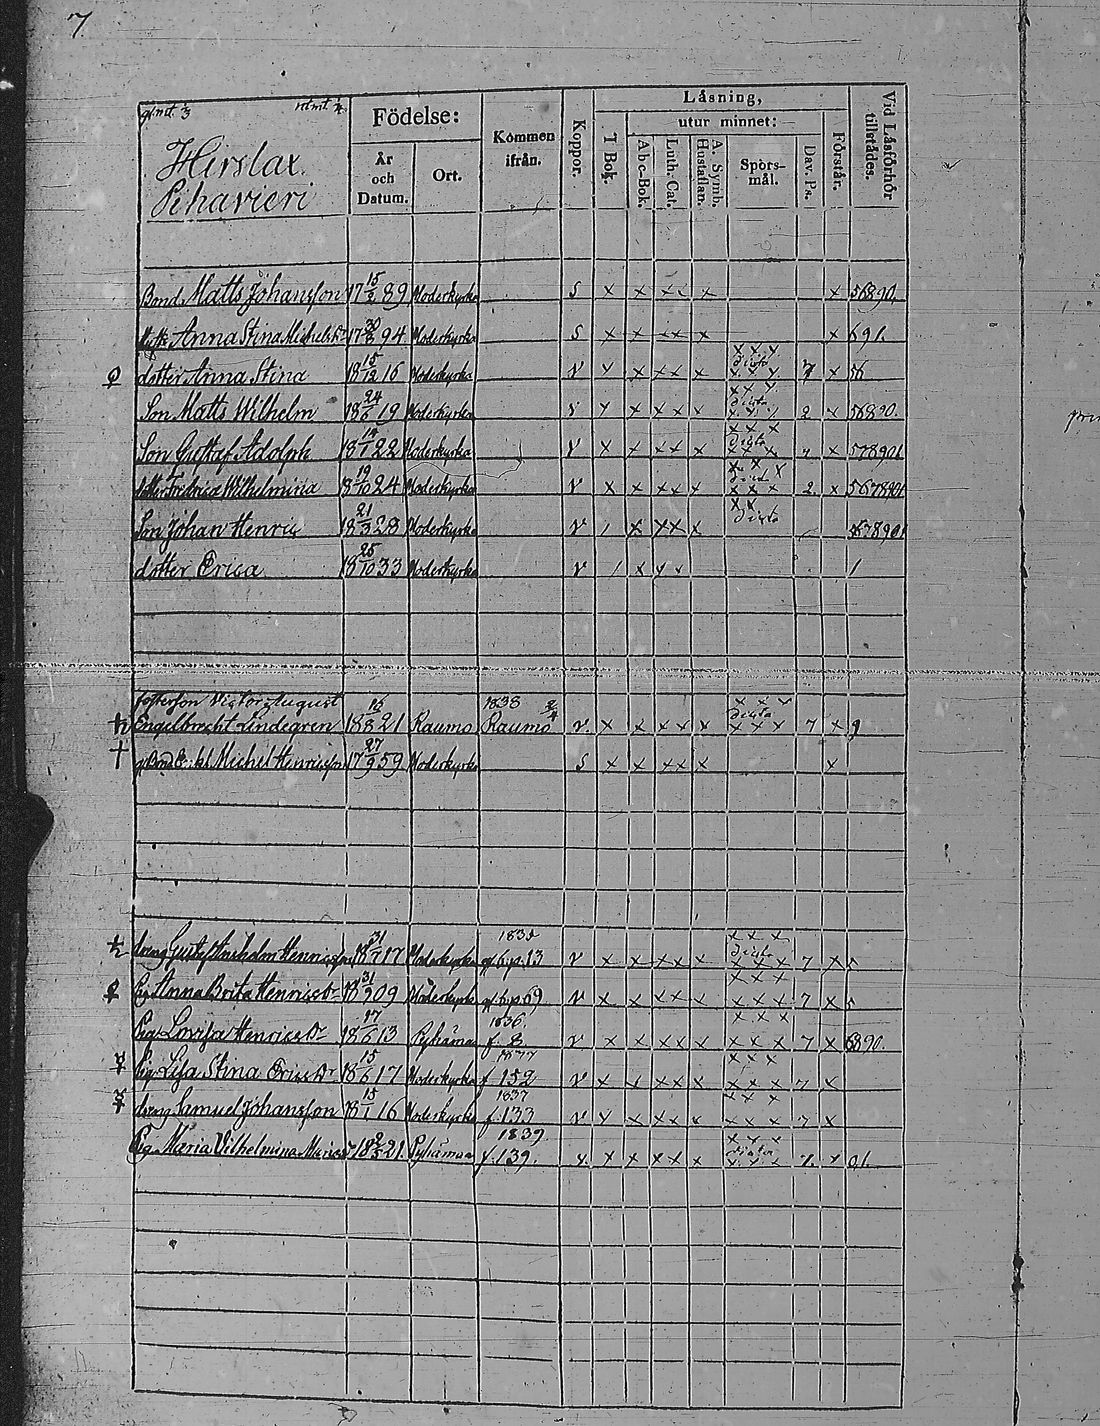 7
Hirslax
Pihavieri
Födelse:
År
och
Datum.
Ort.
Kommen
ifrån.
Koppor.
Läsning,
I Bok.
utur minnet:
Abc-Bok.
Luth. Cat.
A. Symb.
Hustaflan.
Spörs-
mål.
Dav. Ps.
Förstår.
Vid Läsförhör
tillstädes.
Bond. Matts Johansson 17 15/2 89 Moderkyrka S x x x x x x 56890.
Anna Stina Michelsdr 17 94 Moderkyrka S x x x x x x 691.
♀ dotter Anna Stina 18 15/12 16 Moderkyrka v x x x x x x x x dista x x x 7 x 56
Son Matts Wilhelm 18 24 19 Moderkyrka v x x x x x x x x dista 2 x 56890.
Son Gustaf Adolph 18 22 Moderkyrka v x x x x x x x x dista x x x x 578901
dotter Fredrica Wilhelmina 18 19/10 24 Moderkyrka v x x x x x x x x x x x 2 x 5678901
Son Johan Henric 18 21/3 28 Moderkyrka v x x x x x x dista 678901
dotter Erica 18 25/10 33 Moderkyrka v x x x 1
fosterson Victor August 1838
Engelbrecht Lindegren 18 21 Raumo Raumo v x x x x x x x x dista x x x 7 x 9
† Michel Henricsson 17 27/9 59 Moderkyrka S x x x x x x
dreng Gustaf Henricsson 18 31 17 Moderkyrka 13 v x x x x x x x x dista x x x 7 x 5
Pig. Anna Brita Henricsdr 18 31 09 Moderkyrka 69 v x x x x x x x x x x x 7 x 5
Pig. Lovisa Henricsdr 18 17/6 13 Pyhäma 1836. f. 8 v x x x x x x x x x x x 7 x 6890.
Pig. Lisa Stina Ericsdr 18 15/6 17 Moderkyrka f 152 v x x x x x x x x x x x 7 x
dreng Samuel Johansson 18 15/1 16 Moderkyrka 1837 f. 133 v x x x x x x x x x x x 7 x
Pig. Maria Vilhelmina 18 21 Pyhämaa 1839. f. 139. v x x x x x x x x x x x 7. x 01.